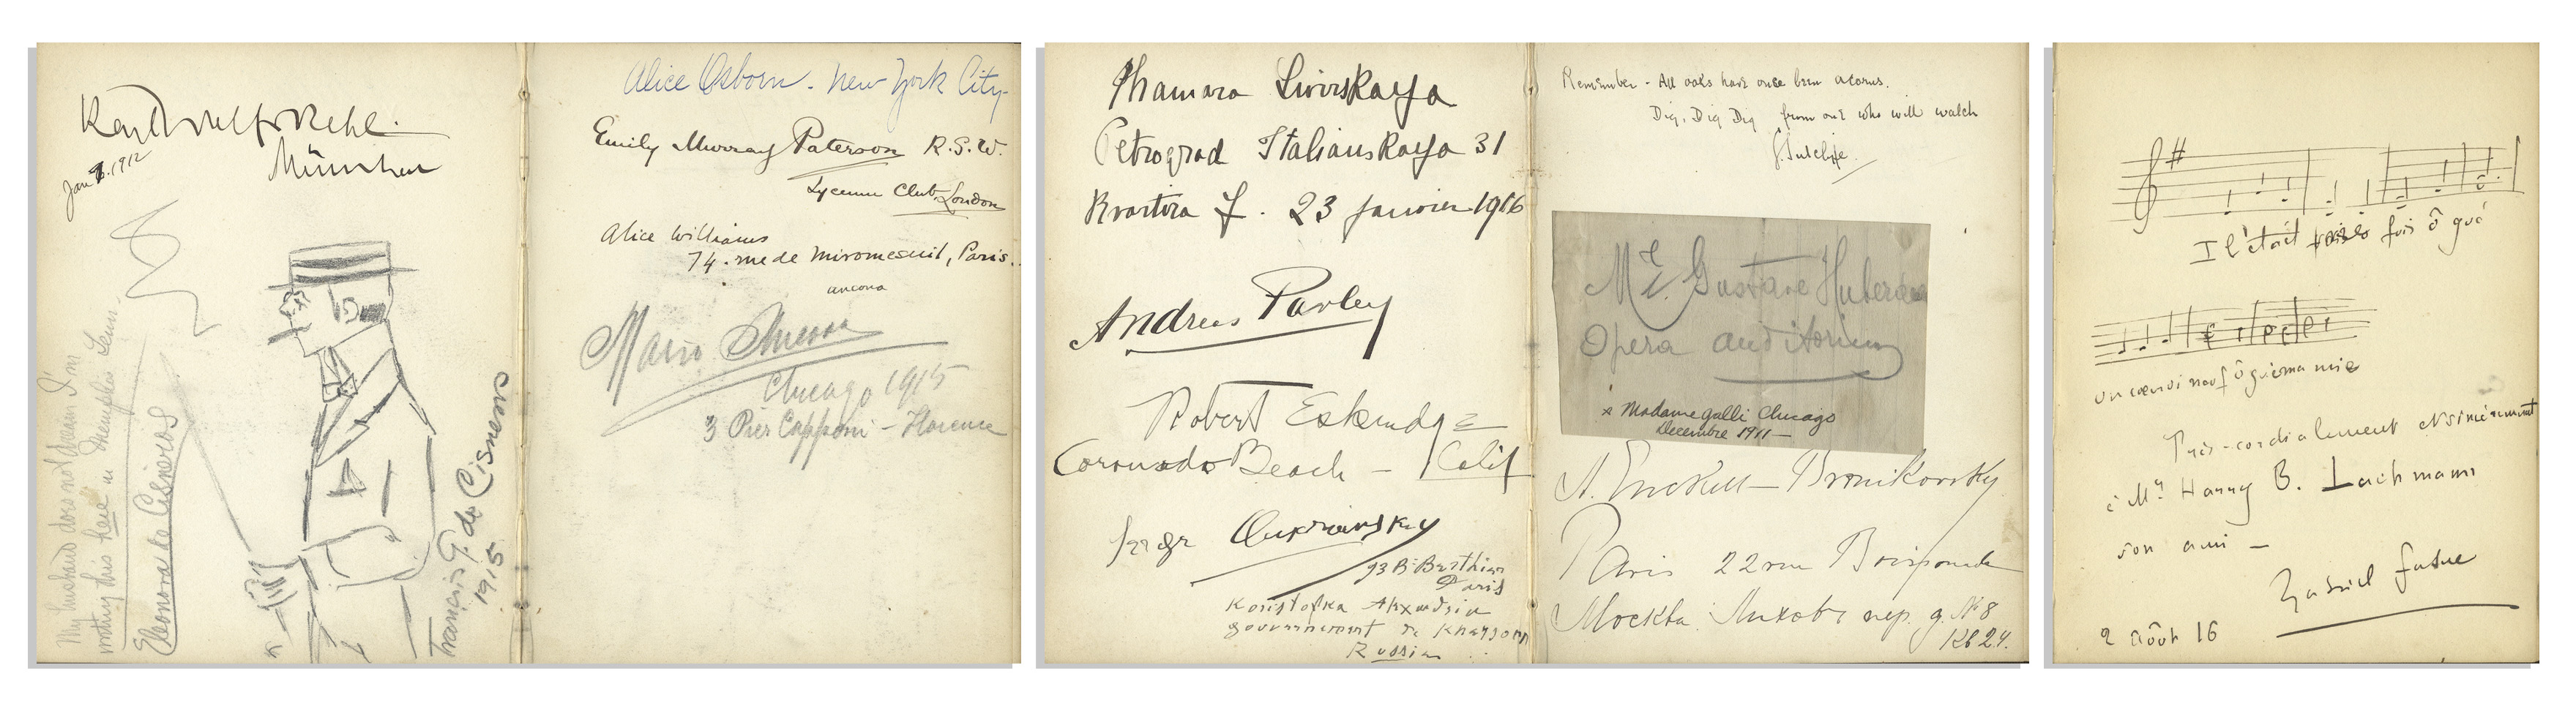 München
Jan 7. 1912
My husband does not quar I'm
writing this here in Memphis Tenn.
Eleonora de Cisneros
Francis G. de Cisneros
1915
Alice Osborn. New York City
Emily Murray Paterson R.S.W.
Lyceum Club, London
Alice Williams
74. rue de Miromesnil, Paris.
ancona
Mario
Chicago 1915
3 Pier Capponi - Florence
Thamara Swirskaya
Petrograd Italianskaya 31
Kvartira 7. 23 janvier 1916
Andreas Pavley
Robert
Coronado Beach - Calif
Serge Oukrainsky
93 B. Berthier
Paris
gouvernement de Kherson
Russian
Remember - All oaks have once been acorns.
Dig, Dig Dig from one who will watch
Sutcliffe
Mr. Gustave Huberdeau
Opera Auditorium
à Madame Galli Chicago
Decembre 1911
Bronikovsky
Paris 22 rue Boissonade
Москва. Лихов пер. д. № 8
Кв 24.
Il était fois ô gué
ô gué ma mie
Très-cordialement et sincèrement
à Mr. Harry B. Lachmann
son ami -
Gabriel Fabre
2 août 16